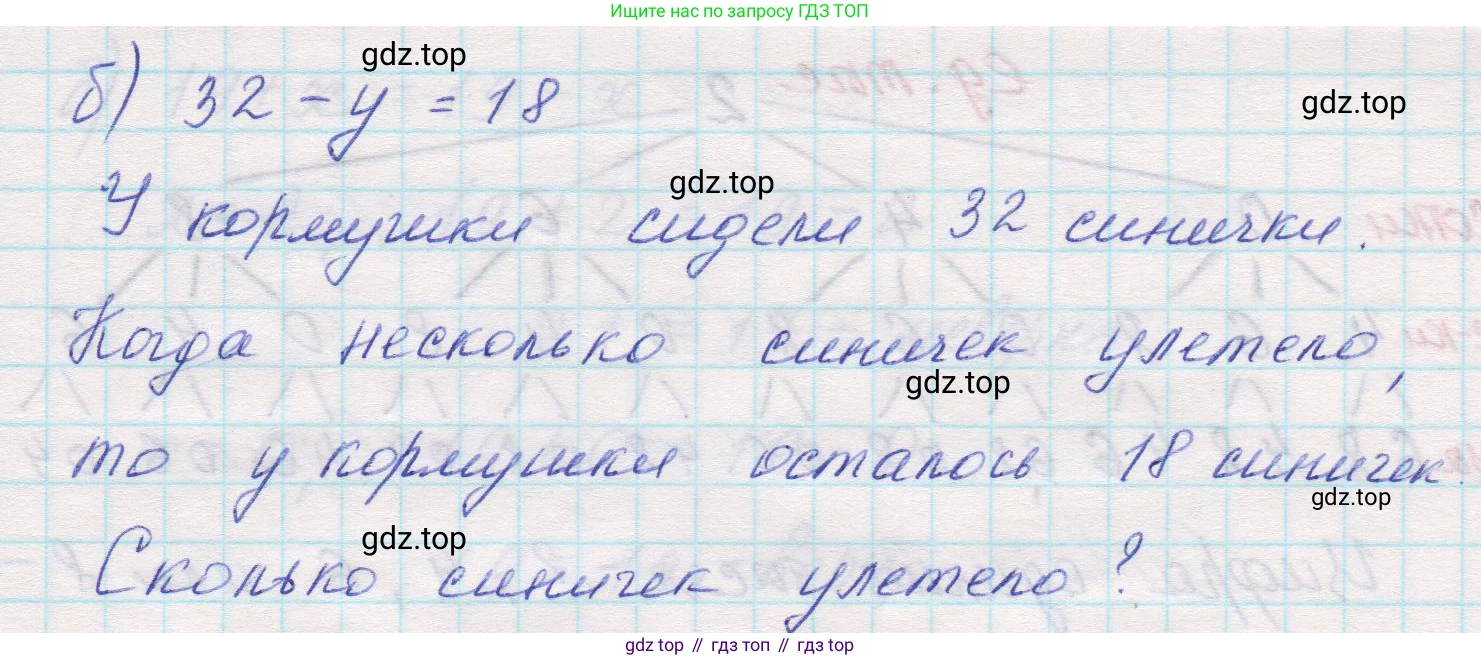 Ищите нас по запросу ГДЗ ТОП
gdz.top
б) 32 - у = 18
gdz.top
gdz.top
У кормушки сидели 32 синички.
Когда несколько синичек улетело,
gdz.top
то у кормушки осталось 18 синичек.
gdz.top
gdz.top
Сколько синичек улетело?
gdz.top // гдз топ // гдз.top